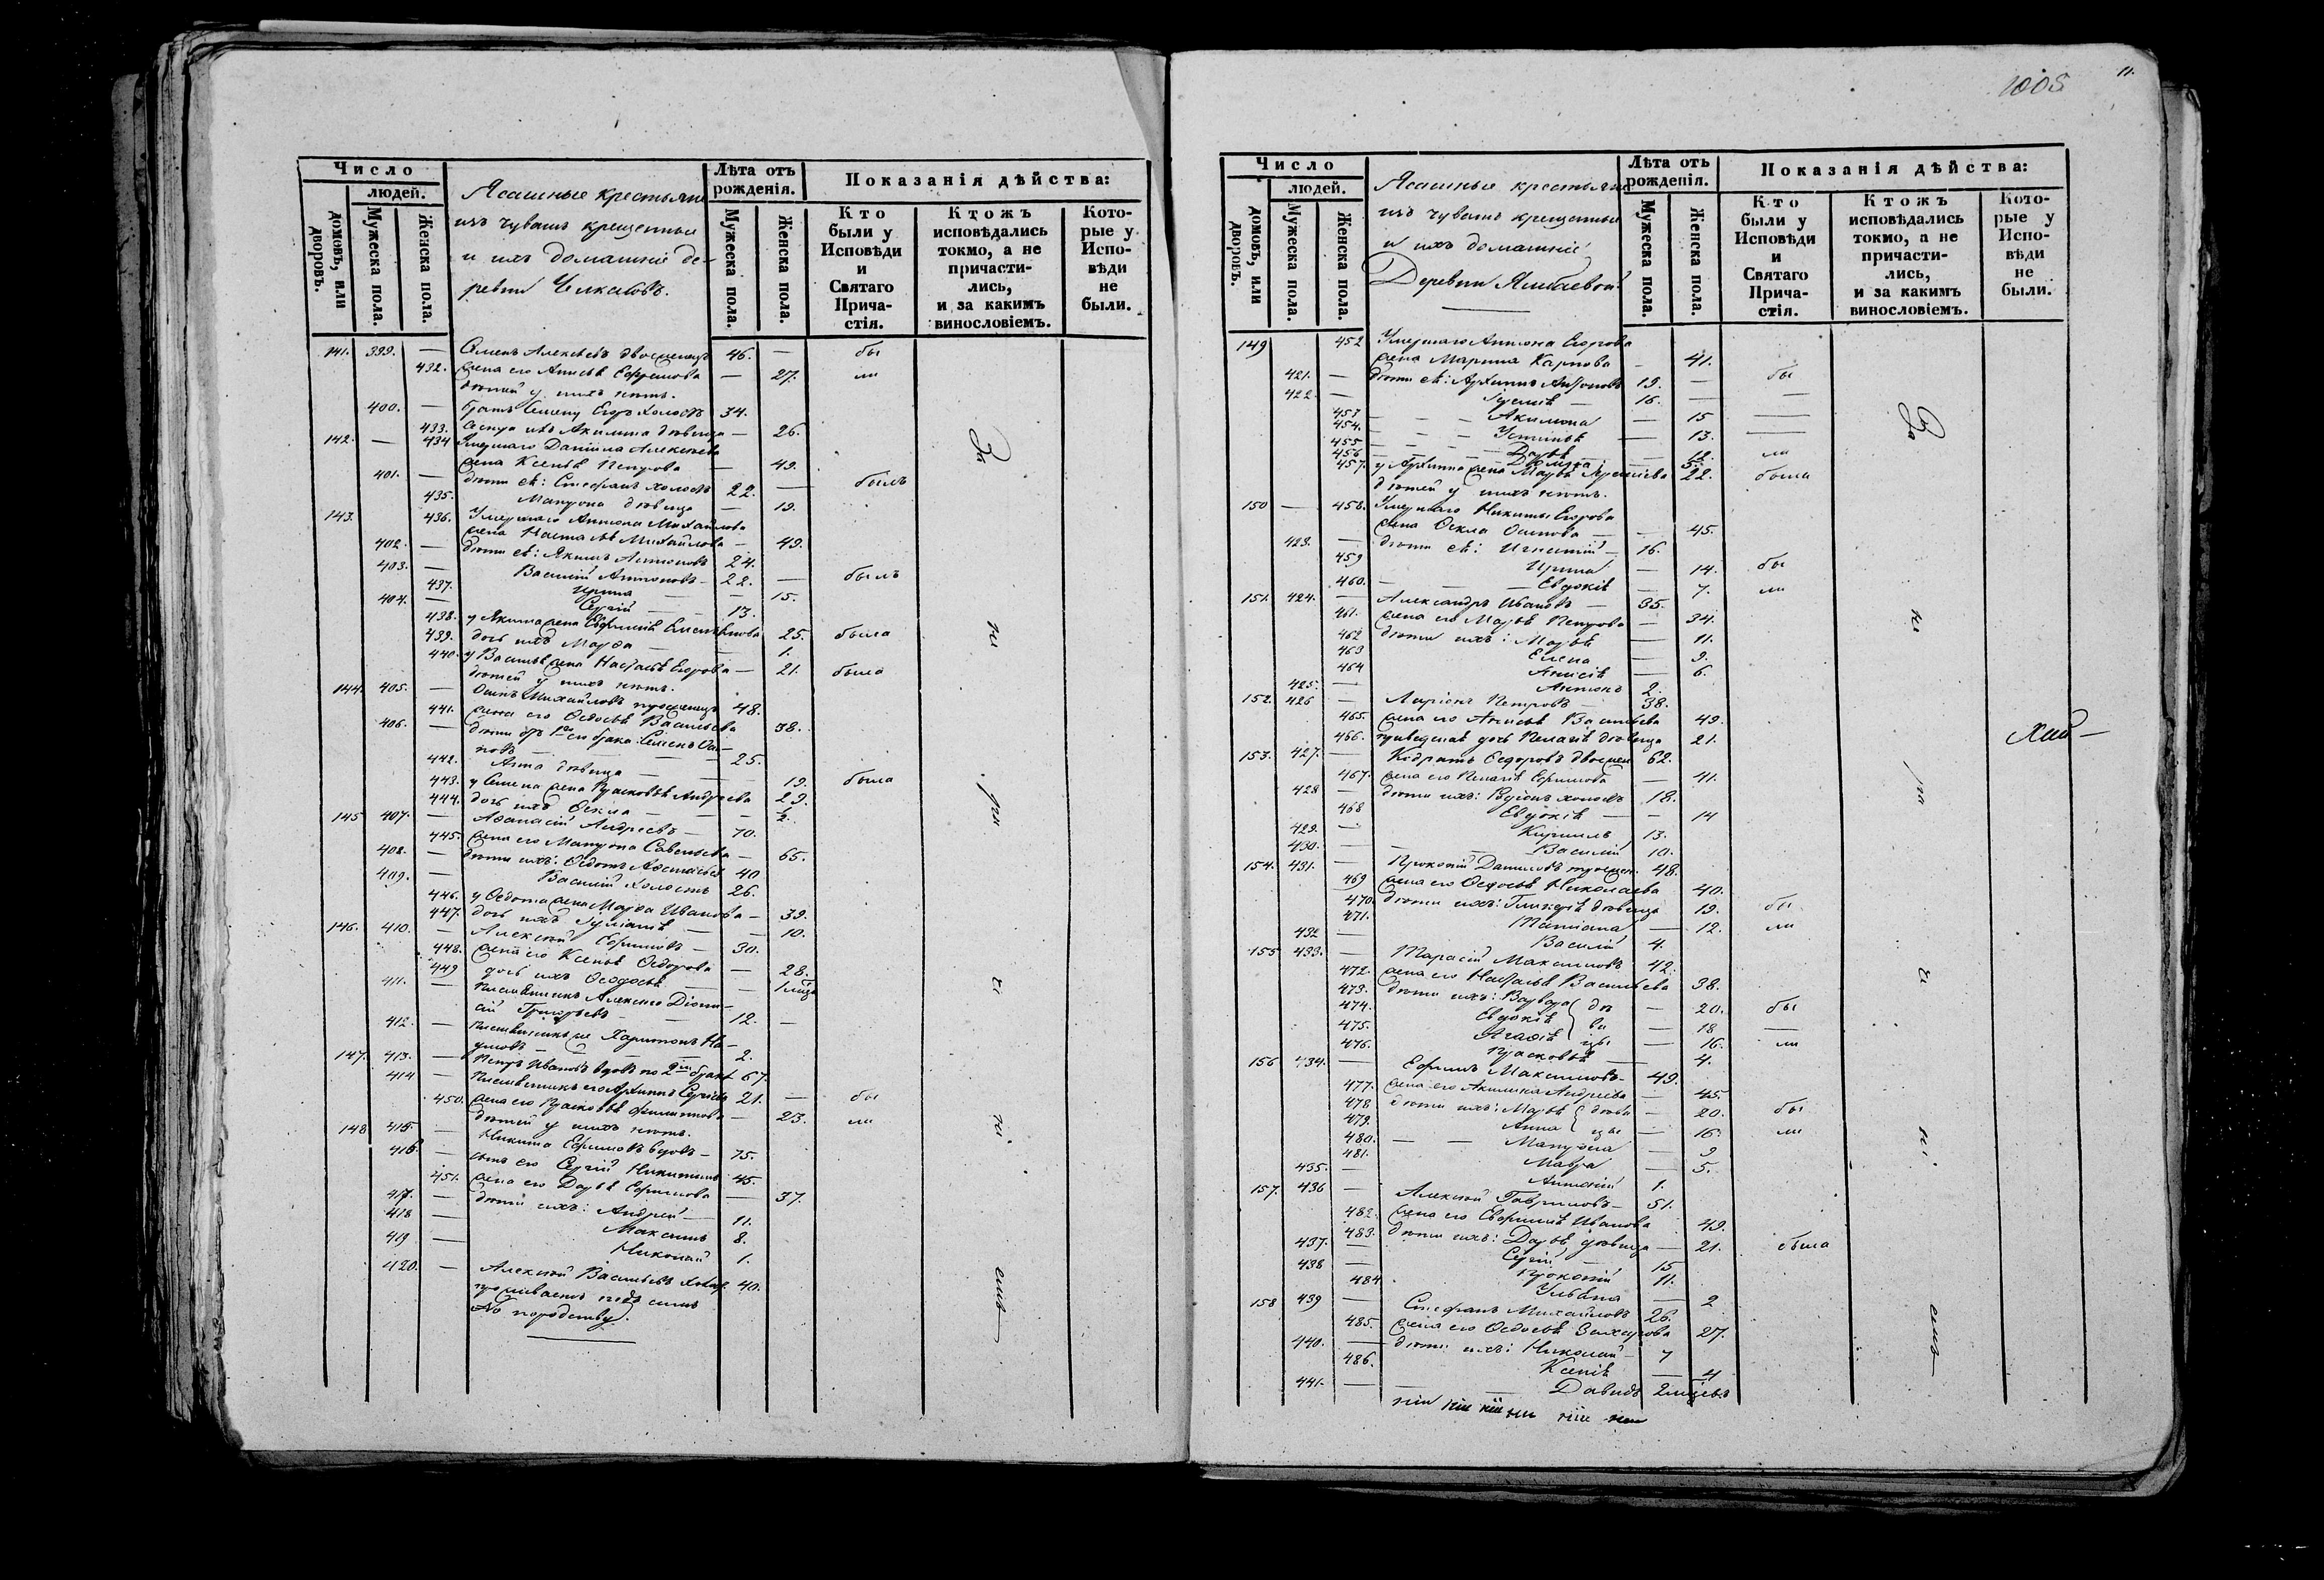 Число
людей.
домовъ, или дворовъ.
Мужеска пола.
Женска пола.
Ясашные крестьяне
изъ чувашъ крещеные
и ихъ домашніе де-
ревни
Лѣта отъ рожденія.
Мужеска пола.
Женска пола.
Показанія дѣйства:
Кто были у Исповѣди и Святаго Прича-стія.
Ктожъ исповѣдались токмо, а не причасти-лись, и за какимъ винословіемъ.
Кото-рые у Испо-вѣди не были.
141. 399. — Семенъ Алексѣевъ двоеженецъ 46. — бы
432. жена его Анисья Ефремова — 27. ли
дѣтей у нихъ нѣтъ.
400. — братъ Семену Егоръ холостъ 34.
433. сестра ихъ Акилина дѣвица — 26.
142. — 434 Умершаго Даніила Алексѣева
жена Ксенья Петрова — 49.
401. — дѣти ея: Стефанъ холостъ 22. — былъ
435. Матрона дѣвица — 19.
143. 436. Умершаго Антона Михайлова
жена Настасья Михайлова — 49.
402. — дѣти ея: Якимъ Антоновъ 24.
403. — Василій Антоновъ — 22. — былъ
437. Ирина — — 15.
404. — Сергій — 13.
438. у Якима жена Евфимія 25. была
439. дочь ихъ Марфа — — 1.
440. у Василья жена Настасья Егорова — 21. была
дѣтей у нихъ нѣтъ.
144. 405. — Осипъ Михайловъ троеженецъ 48.
441. жена его Ѳедосья Васильева 38.
406. — дѣти отъ 1го брака: Семенъ Оси-
повъ — — 25.
442. Анна дѣвица — — 19. была
443. у Семена жена Прасковья Андреева 29.
444. дочь ихъ Ѳекла — — 2.
145 407. — Аѳанасій Андреевъ — 70.
445. жена его Матрона Савельева — 65.
408. — дѣти ихъ: Ѳедотъ Аѳанасьевъ 40
409. — Василій холостъ 26.
446. у Ѳедота жена Марфа Иванова — 39.
447. дочь ихъ Іуліанія — 10.
146. 410. — Алексей Ефимовъ — 30.
448. жена его Ксенья Ѳедорова — 28.
449 дочь ихъ Ѳеодосья —
411. — Племянникъ Алексею Діони-
сій Григорьевъ — 12. —
412. — племянникъ же Харитонъ На-
умовъ — — 2.
147. 413. — Петръ Ивановъ вдовъ по 2мъ бракѣ 67.
414 — Племянникъ его Архипъ Сергѣевъ 21. — бы
450. жена его Прасковья Филиппова — 23. ли
дѣтей у нихъ нѣтъ.
148 415. — Никита Ефимовъ вдовъ — 75.
416. — сынъ его Сергій Никитинъ 45.
451. жена его Дарья Ефимова — 37.
417. — дѣти ихъ: Андрей — 11.
418 — Максимъ 8.
419 — Николай 1.
420. — Алексей Васильевъ 40.
проживаетъ подъ симъ
№ по родству.
За не ра че ні емъ
1005
11.
Число
людей.
домовъ, или дворовъ.
Мужеска пола.
Женска пола.
Ясашные крестьяне
изъ чувашъ крещеные
и ихъ домашніе
Деревни
Лѣта отъ рожденія.
Мужеска пола.
Женска пола.
Показанія дѣйства:
Кто были у Исповѣди и Святаго Прича-стія.
Ктожъ исповѣдались токмо, а не причасти-лись, и за какимъ винословіемъ.
Кото-рые у Испо-вѣди не были.
149 452 Умершаго Антона Егорова
жена Марина Карпова — 41.
421. — дѣти ея: Архипъ Антоновъ 19. — бы
422. — 16. —
453 — Акилина — 15
454. — Устинья — 13.
455 — Дарья — 12. ли
456 — 5.
457. у Архипа жена Марья 22. была
дѣтей у нихъ нѣтъ.
150 — 458. Умершаго Никиты Егорова
жена Ѳекла Осипова — 45.
423. — дѣти ея: Игнатій — 16.
459 Ирина — 14. бы
460. — Евдокія — 7. ли
151. 424. — Александръ Ивановъ — 35.
461. жена его Марья Петрова — 34.
462 дѣти ихъ: Марья — 11.
463 Елена — 9.
464 Анисія — 6.
425. — Антонъ 2.
152. 426 — Ларіонъ Петровъ — 38.
465. жена его Анисья Васильева 49.
466. приведеная дочь Пелагія дѣвица 21.
153. 427. — Кодратъ Ѳедоровъ двоежен 62.
467. жена его Пелагія Ефимова — 41.
428 — дѣти ихъ: холостъ 18.
468 Евдокія — — 14
429. — Кириллъ 13.
430. — Василій 10.
154. 431. — Прокопій Даниловъ троежен. 48.
469 жена его Ѳедосья Николаева 40.
470. дѣти ихъ: Гликерія дѣвица 19. бы
471. Татіана — 12. ли
432 — Василій 4.
155 433. — Тарасій Максимовъ 42.
472. жена его Настасья Васильева 38.
473. дѣти ихъ: Варвара дѣ — 20. бы
474. Евдокія ви — 18 —
475. Агафія цы — 16. ли
476. Прасковья — 4.
156 434. — Ефимъ Максимовъ — 49.
477. жена его Акилина Андреева — 45.
478 дѣти ихъ: Марья дѣви — 20. бы
479. Анна цы — 16. ли
480. — — Матрона — 9
481. Мавра — 5.
435. — Антоній 1.
157. 436 — Алексей Гавриловъ — 51.
482. жена его Евфимія Иванова 49.
483. дѣти ихъ: Дарья дѣвица — 21. была
437. — Сергій — 15
438 — Прокопій 11.
484 Ульяна — 2
158 439 — Стефанъ Михайловъ 26.
485. жена его Ѳедосья Захарова 27.
440. — дѣти ихъ: Николай — 7
486. Ксенія — 4
441. — Давидъ
За не ра че ні емъ